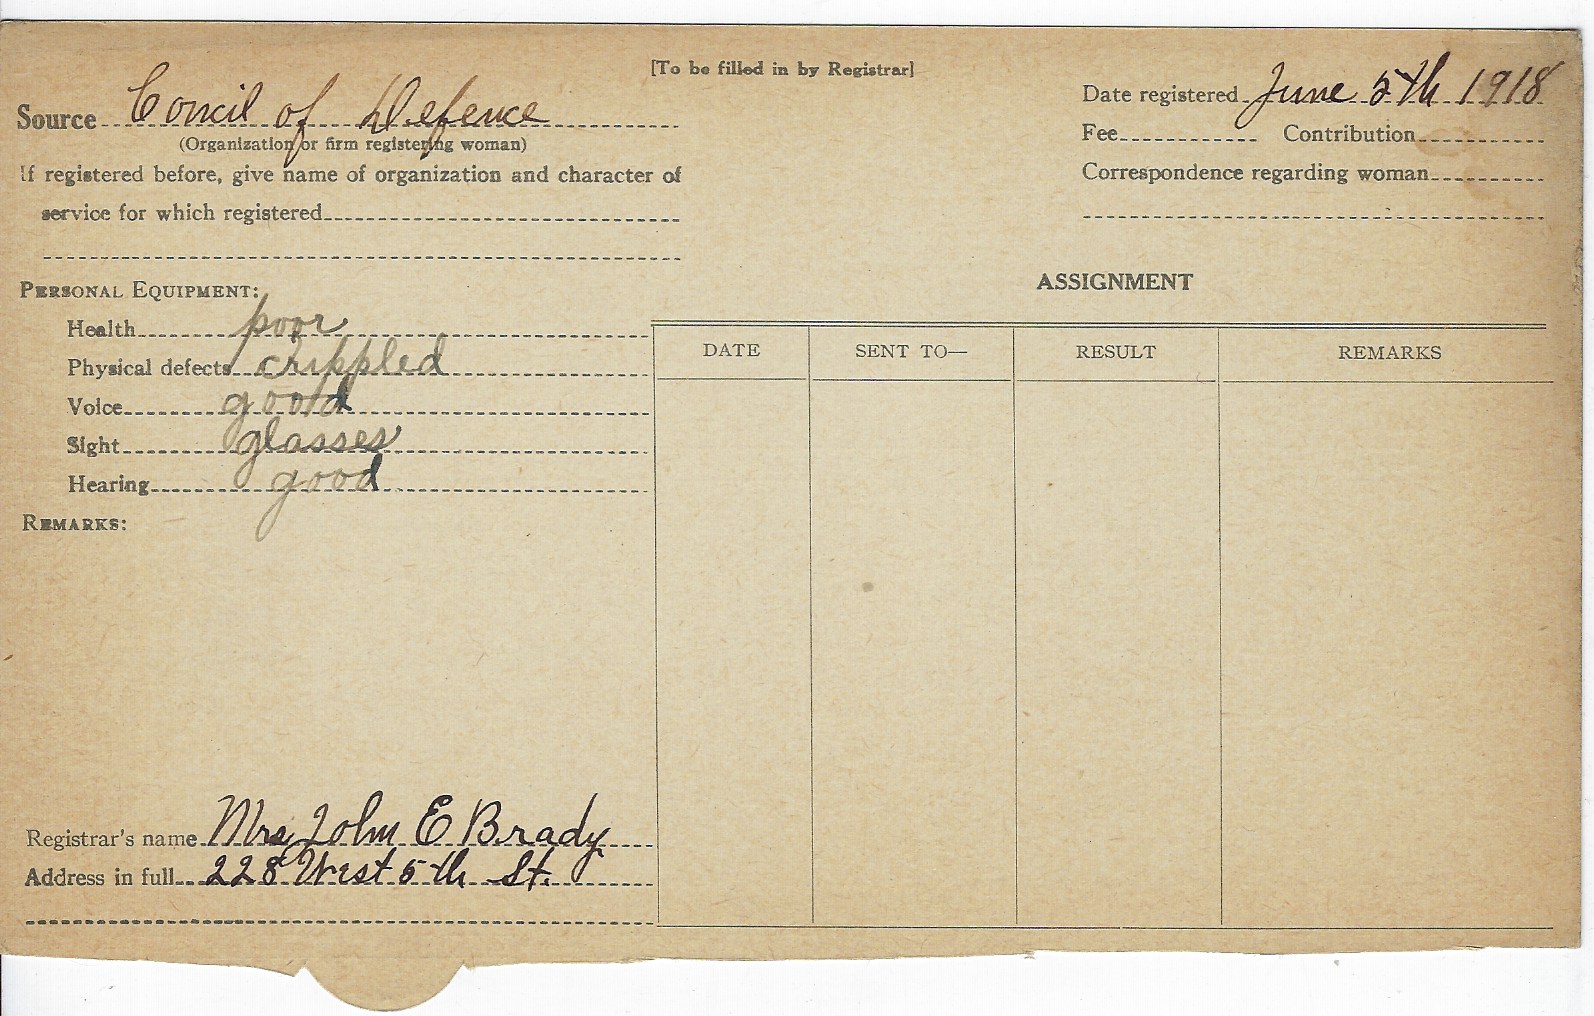 [To be filled in by Registrar]
Source Concil of Defence
(Organization or firm registering woman)
If registered before, give name of organization and character of
service for which registered
Date registered June 5th 1918
Fee Contribution
Correspondence regarding woman
PERSONAL EQUIPMENT:
Health poor
Physical defects crippled
Voice good
Sight glasses
Hearing good
REMARKS:
ASSIGNMENT
DATE SENT TO— RESULT REMARKS
Registrar's name Mrs John E Brady
Address in full 228 West 5th St.